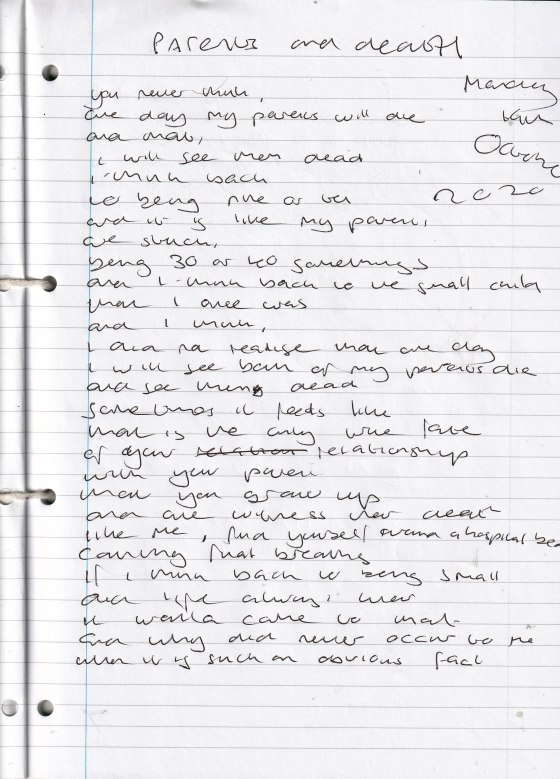 Parents and death
Monday
5th
October
2020
you never think,
one day my parents will die
and that,
I will see them dead
I think back
to being nine or ten
and it is like my parents
are stuck,
being 30 or 40 somethings
and I think back to the small child
that I once was
and I think,
I did not realise that one day
I will see both of my parents die
and see them dead
sometimes it feels like
that is the only true fate
of your relation relationship
with your parent
that you grow up
and are witness their death
like me, find yourself around a hospital bed
Counting final breaths
if I think back to being small
did life always know
it would come to that
and why did never occur to me
when it is such an obvious fact